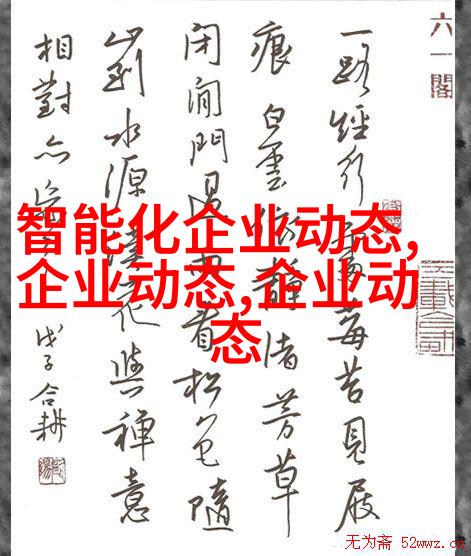 六一閣
一路經行處莓苔見屐
痕白雲依靜渚芳草
閉閒門過雨看松色隨
山到水源溪花與禪意
相對亦忘言
戊子合耕
智能化企业动态,
企业动态,企业动
态
无为斋 52wwz.c